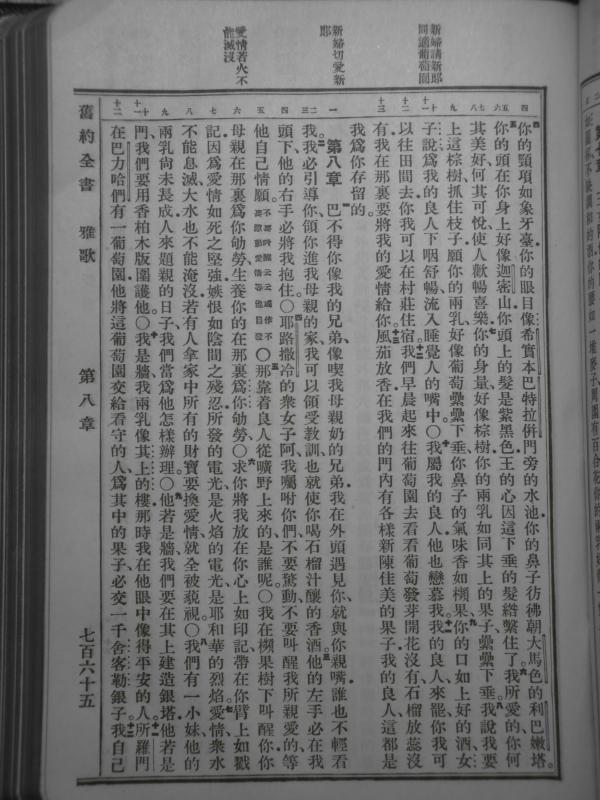 新婦請新郎
同適葡萄園
新婦切愛新
郎
愛情若火不
能滅沒
你的頸項如象牙臺你的眼目像希實本巴特拉併門旁的水池你的鼻子彷彿朝大馬色的利巴嫩塔
你的頭在你身上好像迦密山你頭上的髮是紫黑色王的心因這下垂的髮綹繫住了我所愛的你何
其美好何其可悅使人歡暢喜樂你的身量好像棕樹你的兩乳如同其上的果子纍纍下垂我說我要
上這棕樹抓住枝子願你的兩乳好像葡萄纍纍下垂你鼻子的氣味香如櫇果你的口如上好的酒女
子說爲我的良人下咽舒暢流入睡覺人的嘴中〇我屬我的良人他也戀慕我我的良人來罷你我可
以往田間去你我可以在村莊住宿我們早晨起來往葡萄園去看看葡萄發芽開花沒有石榴放蕊沒
有我在那裏要將我的愛情給你風茄放香在我們的門內有各樣新陳佳美的果子我的良人這都是
我爲你存留的
第八章 巴不得你像我的兄弟像喫我母親奶的兄弟我在外頭遇見你就與你親嘴誰也不輕看
我我必引導你領你進我母親的家我可以領受教訓也就使你喝石榴汁釀的香酒他的左手必在我
頭下他的右手必將我抱住〇耶路撒冷的衆女子阿我囑咐你們不要驚動不要叫醒我所親愛的等
他自己情願〇那靠着良人從曠野上來的是誰呢〇我在櫇果樹下叫醒你你
母親在那裏爲你劬勞生養你的在那裏爲你劬勞〇求你將我放在你心上如印記帶在你臂上如戳
記因爲愛情如死之堅強嫉恨如陰間之殘忍所發的電光是火焰的電光是耶和華的烈焰愛情衆水
不能息滅大水也不能淹沒若有人拿家中所有的財寶要換愛情就全被藐視〇我們有一小妹他的
兩乳尚未長成人來題親的日子我們當爲他怎樣辦理〇他若是牆我們要在其上建造銀塔他若是
門我們要用香柏木版圍護他〇我是牆我兩乳像其上的樓那時我在他眼中像得平安的人所羅門
在巴力哈們有一葡萄園他將這葡萄園交給看守的人爲其中的果子必交一千舍客勒銀子我自己
舊約全書 雅歌 第八章 七百六十五